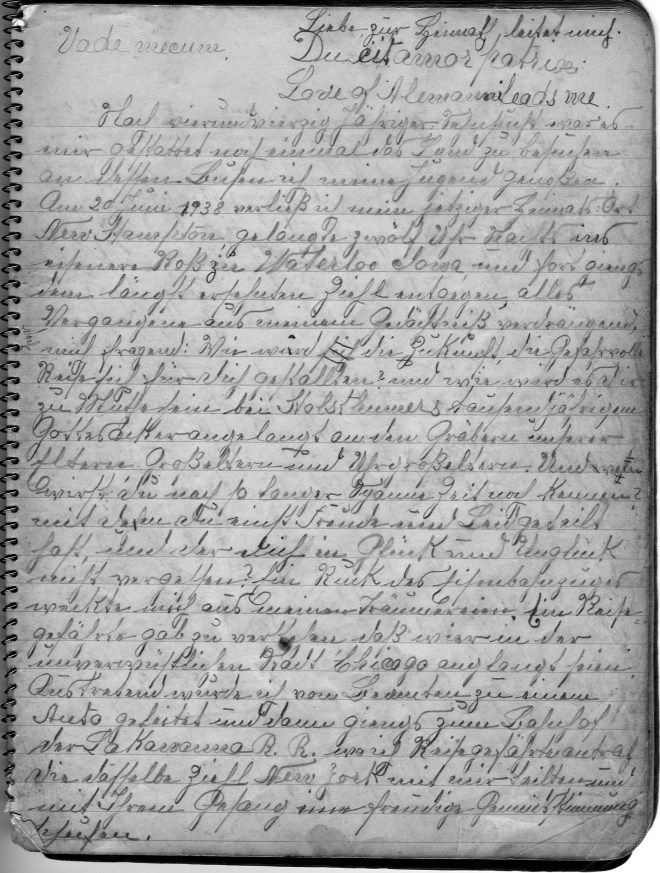 Vade mecum.
Liebe zur Heimath, leitet mich.
Ducit amor patriae.
Love of Alemannia leads me.
Nach vierundvierzig Jähriger Sehnsucht war es
mir gestattet noch einmal das Land zu besuchen
an dessen Busen ich meine Jugend genoßen.
Am 20 Juni 1938 verließ ich mein jetziger Heimats-Ort
New Hampton, gelangte zwölf Uhr Nachts ins
eisenere Roß zu Waterloo Iowa und fort giengs
dem längst ersehnten Ziehl entgegen, alles
Vergangene aus meinem Gedächtniß verdrängend,
mich fragend: Wie wird die Zukunft, die Gefahrvolle
Reise sich für dich gestallten? und wie wird es dir
zu Muthe sein bei tausendjährigem
Gottes Acker angelangt an den Gräbern unserer
Eltern Großeltern und Uhrgroßeltern. Und wen
wirst du nach so langer Zeit noch kennen?
mit dem du einst Freude und Leid geteilt
hast, und der dich in Glück und Unglück
nicht vergessen? Ein Ruck des Eisenbahnzuges
weckte mich aus meinen Träumereien. Ein Reise-
gefährte gab zu verstehen daß wier in der
unverwüstlichen Stadt Chicago anglangt seien.
Austretend wurde ich vom Beamten zu einem
Auto geleitet und dann giengs zum Bahnhof
der Lakawanna R. R. wo ich Reisegefährte antraf
die dasselbe Ziehl New York mit mir teilten und
mit Ihrem Gesang eine freudige Gemüts Stimmung
schufen.